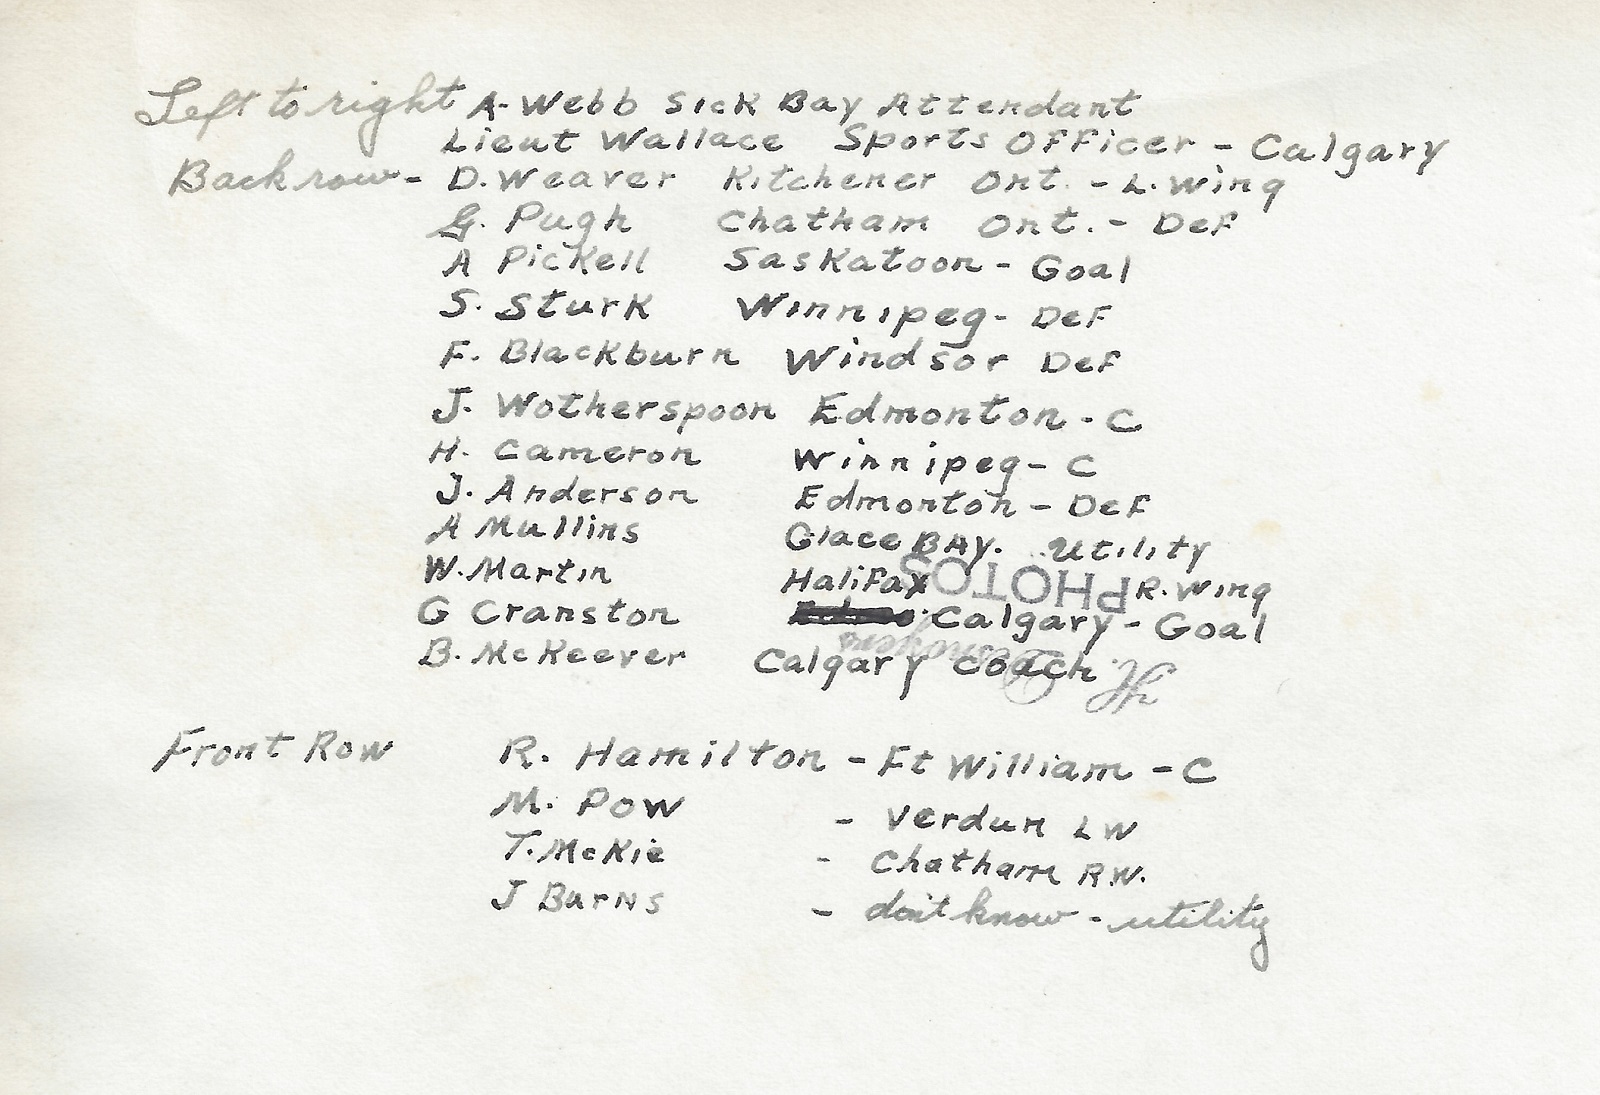 Left to right A. Webb Sick Bay Attendant
Lieut Wallace Sports Officer - Calgary
Back row - D. Weaver Kitchener Ont. - L. Wing
G. Pugh Chatham Ont. - Def
A Pickell Saskatoon - Goal
S. Sturk Winnipeg - Def
F. Blackburn Windsor Def
J. Wotherspoon Edmonton - C
H. Cameron Winnipeg - C
J. Anderson Edmonton - Def
A Mullins Glace Bay. Utility
W. Martin Halifax R. Wing
PHOTOS
G Cranston Calgary - Goal
B. McKeever Calgary Coach
Front Row R. Hamilton - Ft William - C
M. Pow - Verdun LW
T. McKie - Chatham R.W.
J Burns - don't know - utility